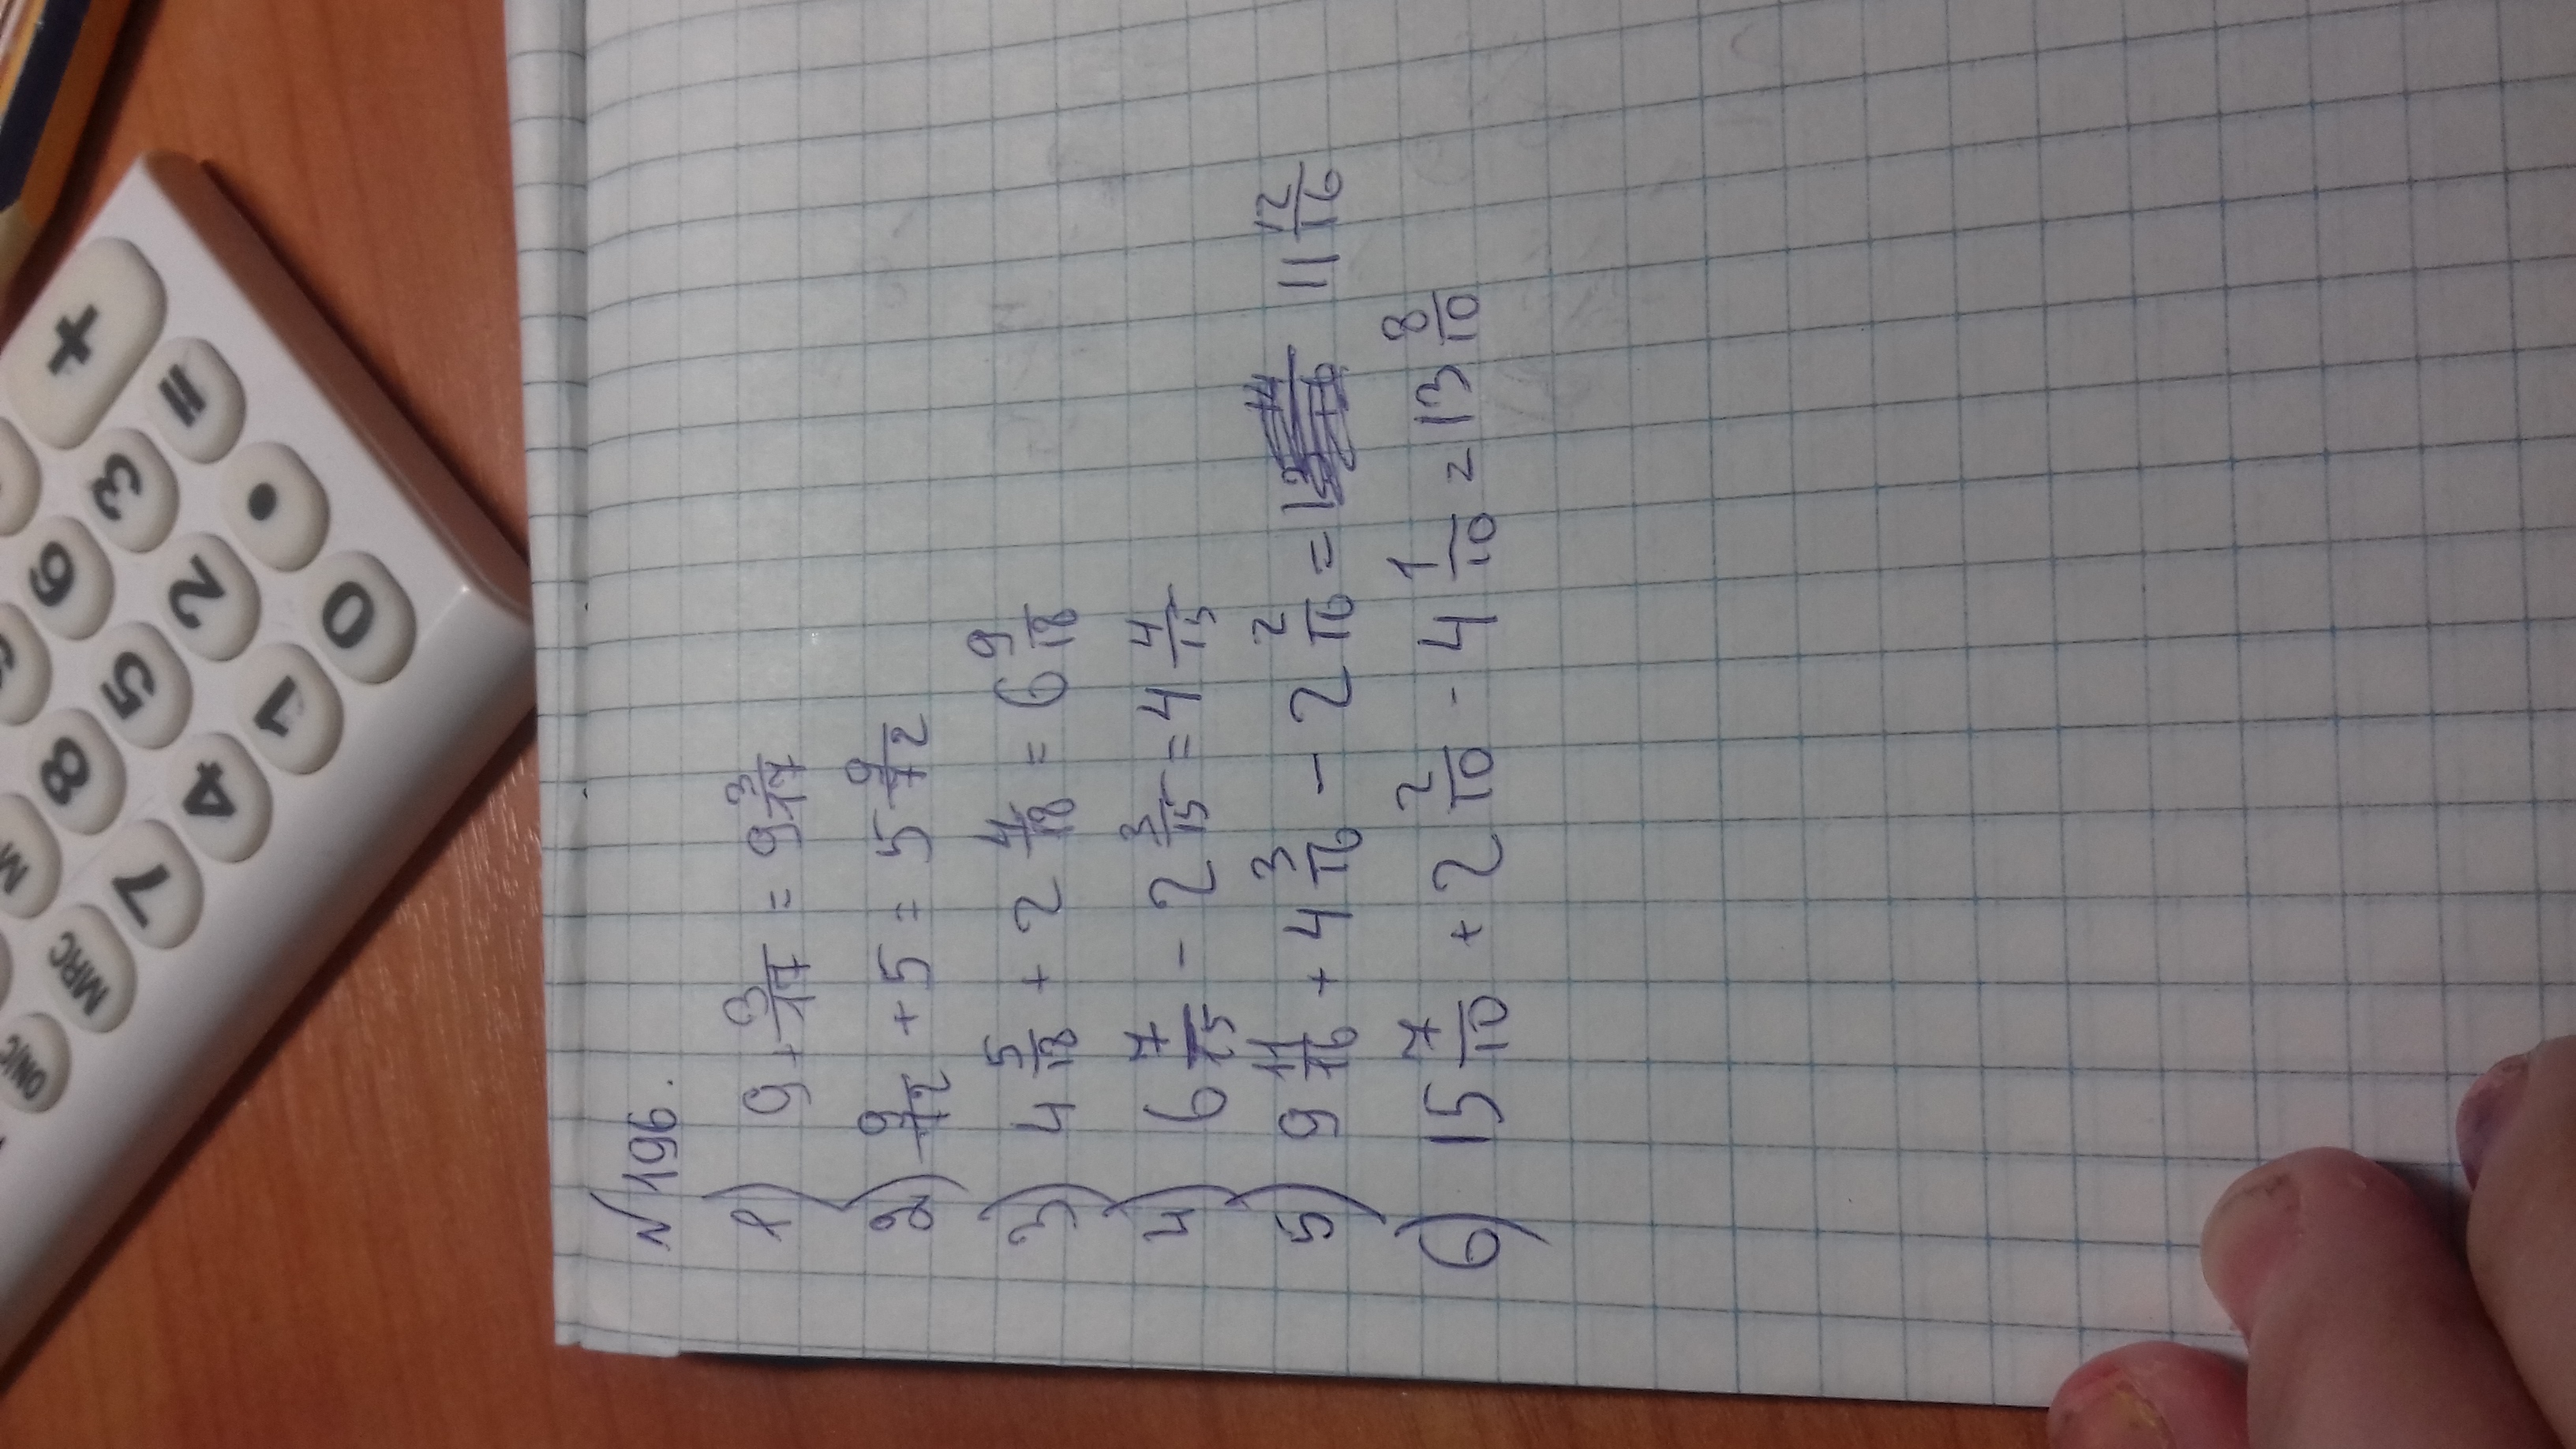 №196.
1) 9 + 3/17 = 9 3/17
2) 9/12 + 5 = 5 9/12
3) 4 5/18 + 2 4/18 = 6 9/18
4) 6 7/15 - 2 3/15 = 4 4/15
5) 9 11/16 + 4 3/16 - 2 2/16 = 11 12/16
6) 15 7/10 + 2 2/10 - 4 1/10 = 13 8/10
+
=
3
•
6
2
0
5
1
8
4
M
7
MRC
ON/C